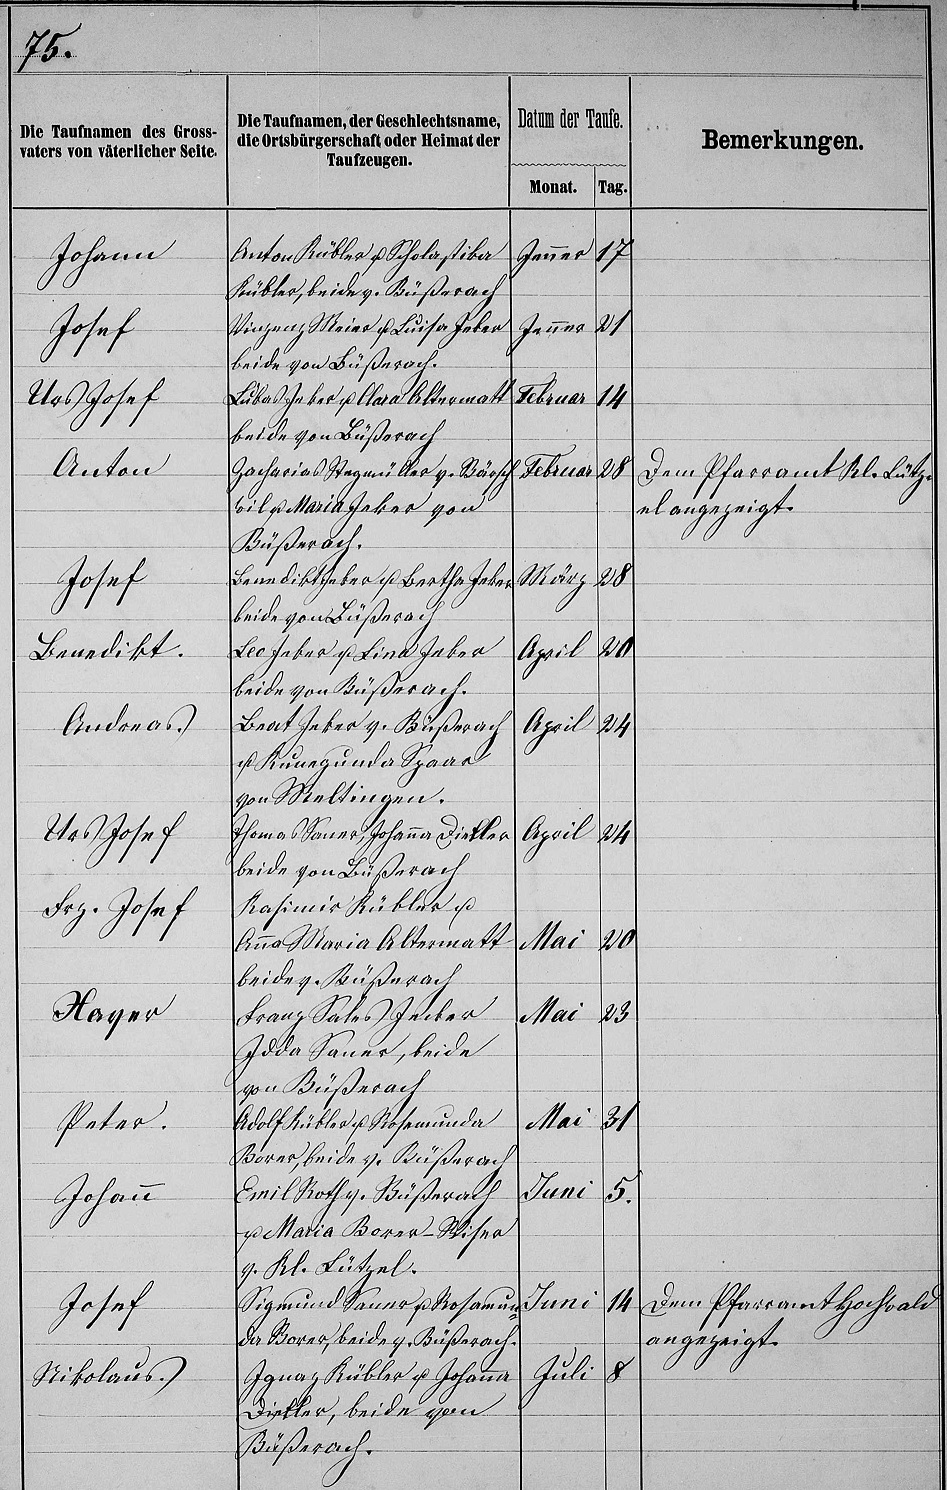 75.
Die Taufnamen des Gross-
vaters von väterlicher Seite.
Die Taufnamen, der Geschlechtsname,
die Ortsbürgerschaft oder Heimat der
Taufzeugen.
Datum der Taufe.
Monat. Tag.
Bemerkungen.
Johann Anton Kübler u Scholastika Jenner 17
Kübler, beide v. Büßerach
Josef Vinzenz Meier u Luisa Jeker Jenner 21
beide von Büßerach.
Urs Josef Lukas Jeker u Clara Altermatt Februar 14
beide von Büßerach
Anton Zacharias Stegmüller v. Bärsch Februar 28 Dem Pfarramt Kl. Lütz-
wil u Maria Jeker von el angezeigt.
Büßerach.
Josef Benedikt Jeker u Bertha Jeker März 28
beide von Büßerach
Benedikt. Leo Jeker u Lina Jeker April 20
beide von Büßerach.
Andreas Beat Jeker v. Büßerach April 24
u Kunegunda Spaar
von Meltingen.
Urs Josef Thomas Saner, Johanna Dietler April 24
beide von Büßerach
Frz. Josef Kasimir Kübler u
Anna Maria Altermatt Mai 20
beide v. Büßerach
Xaver Franz Sales Jecker Mai 23
Idda Saner, beide
von Büßerach
Peter. Adolf Kübler u Rosemunda Mai 31
Borer, beide v. Büßerach
Johann Emil Roth v. Büßerach Juni 5.
u Maria Borer-Wiser
v. Kl. Lützel.
Josef Sigmund Saner u Rosamun= Juni 14 Dem Pfarramt Hochwald
da Borer, beide v. Büßerach. angezeigt.
Nikolaus Ignaz Kübler u Johanna Juli 8
Dietler, beide von
Büßerach.